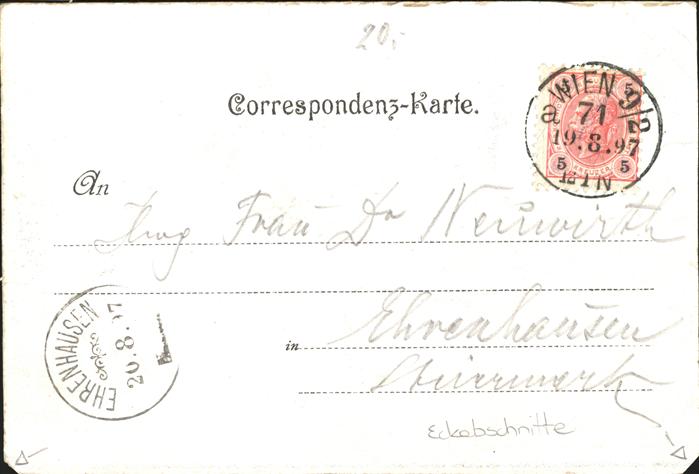 20,-
Correspondenz-Karte.
WIEN 9/2
a 71
19.8.97
5 5 5
KREUZER
An
Frau Dr Neuwirth
in Ehrenhausen
Steiermark
EHRENHAUSEN
20.8.97
Eckabschnitte